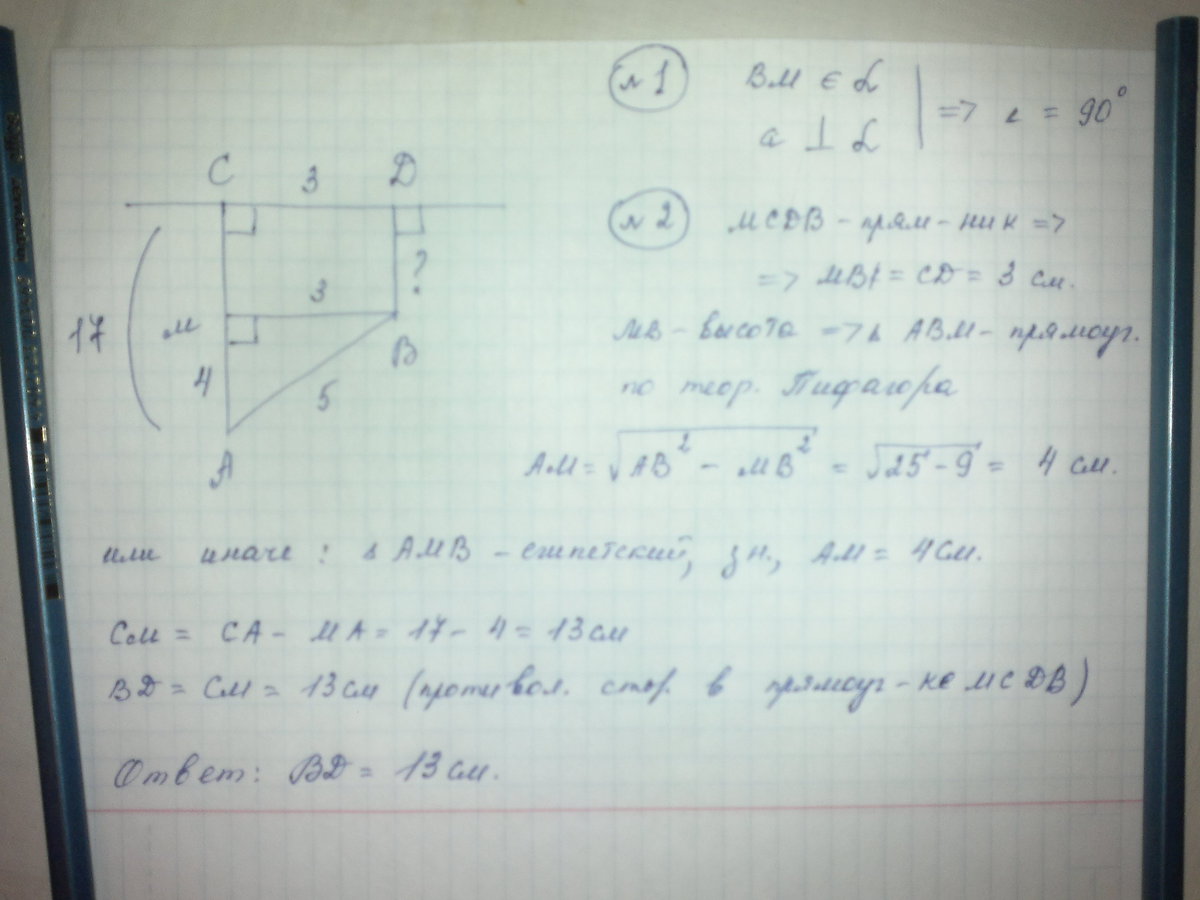 № 1
ВМ ∈ α
a ⊥ α
=> ∠ = 90°
C 3 D
17
3
?
М
4
5
В
А
№ 2
МСDВ - прям-ник =>
=> МВ = CD = 3 см.
МВ - высота => Δ АВМ - прямоуг.
по теор. Пифагора
АМ = √АВ² - МВ² = √25 - 9 = 4 см.
или иначе: Δ АМВ - египетский, зн., АМ = 4 см.
СМ = СА - МА = 17 - 4 = 13 см
ВD = СМ = 13 см (противол. стор. в прямоуг-ке МСDВ)
Ответ: ВD = 13 см.